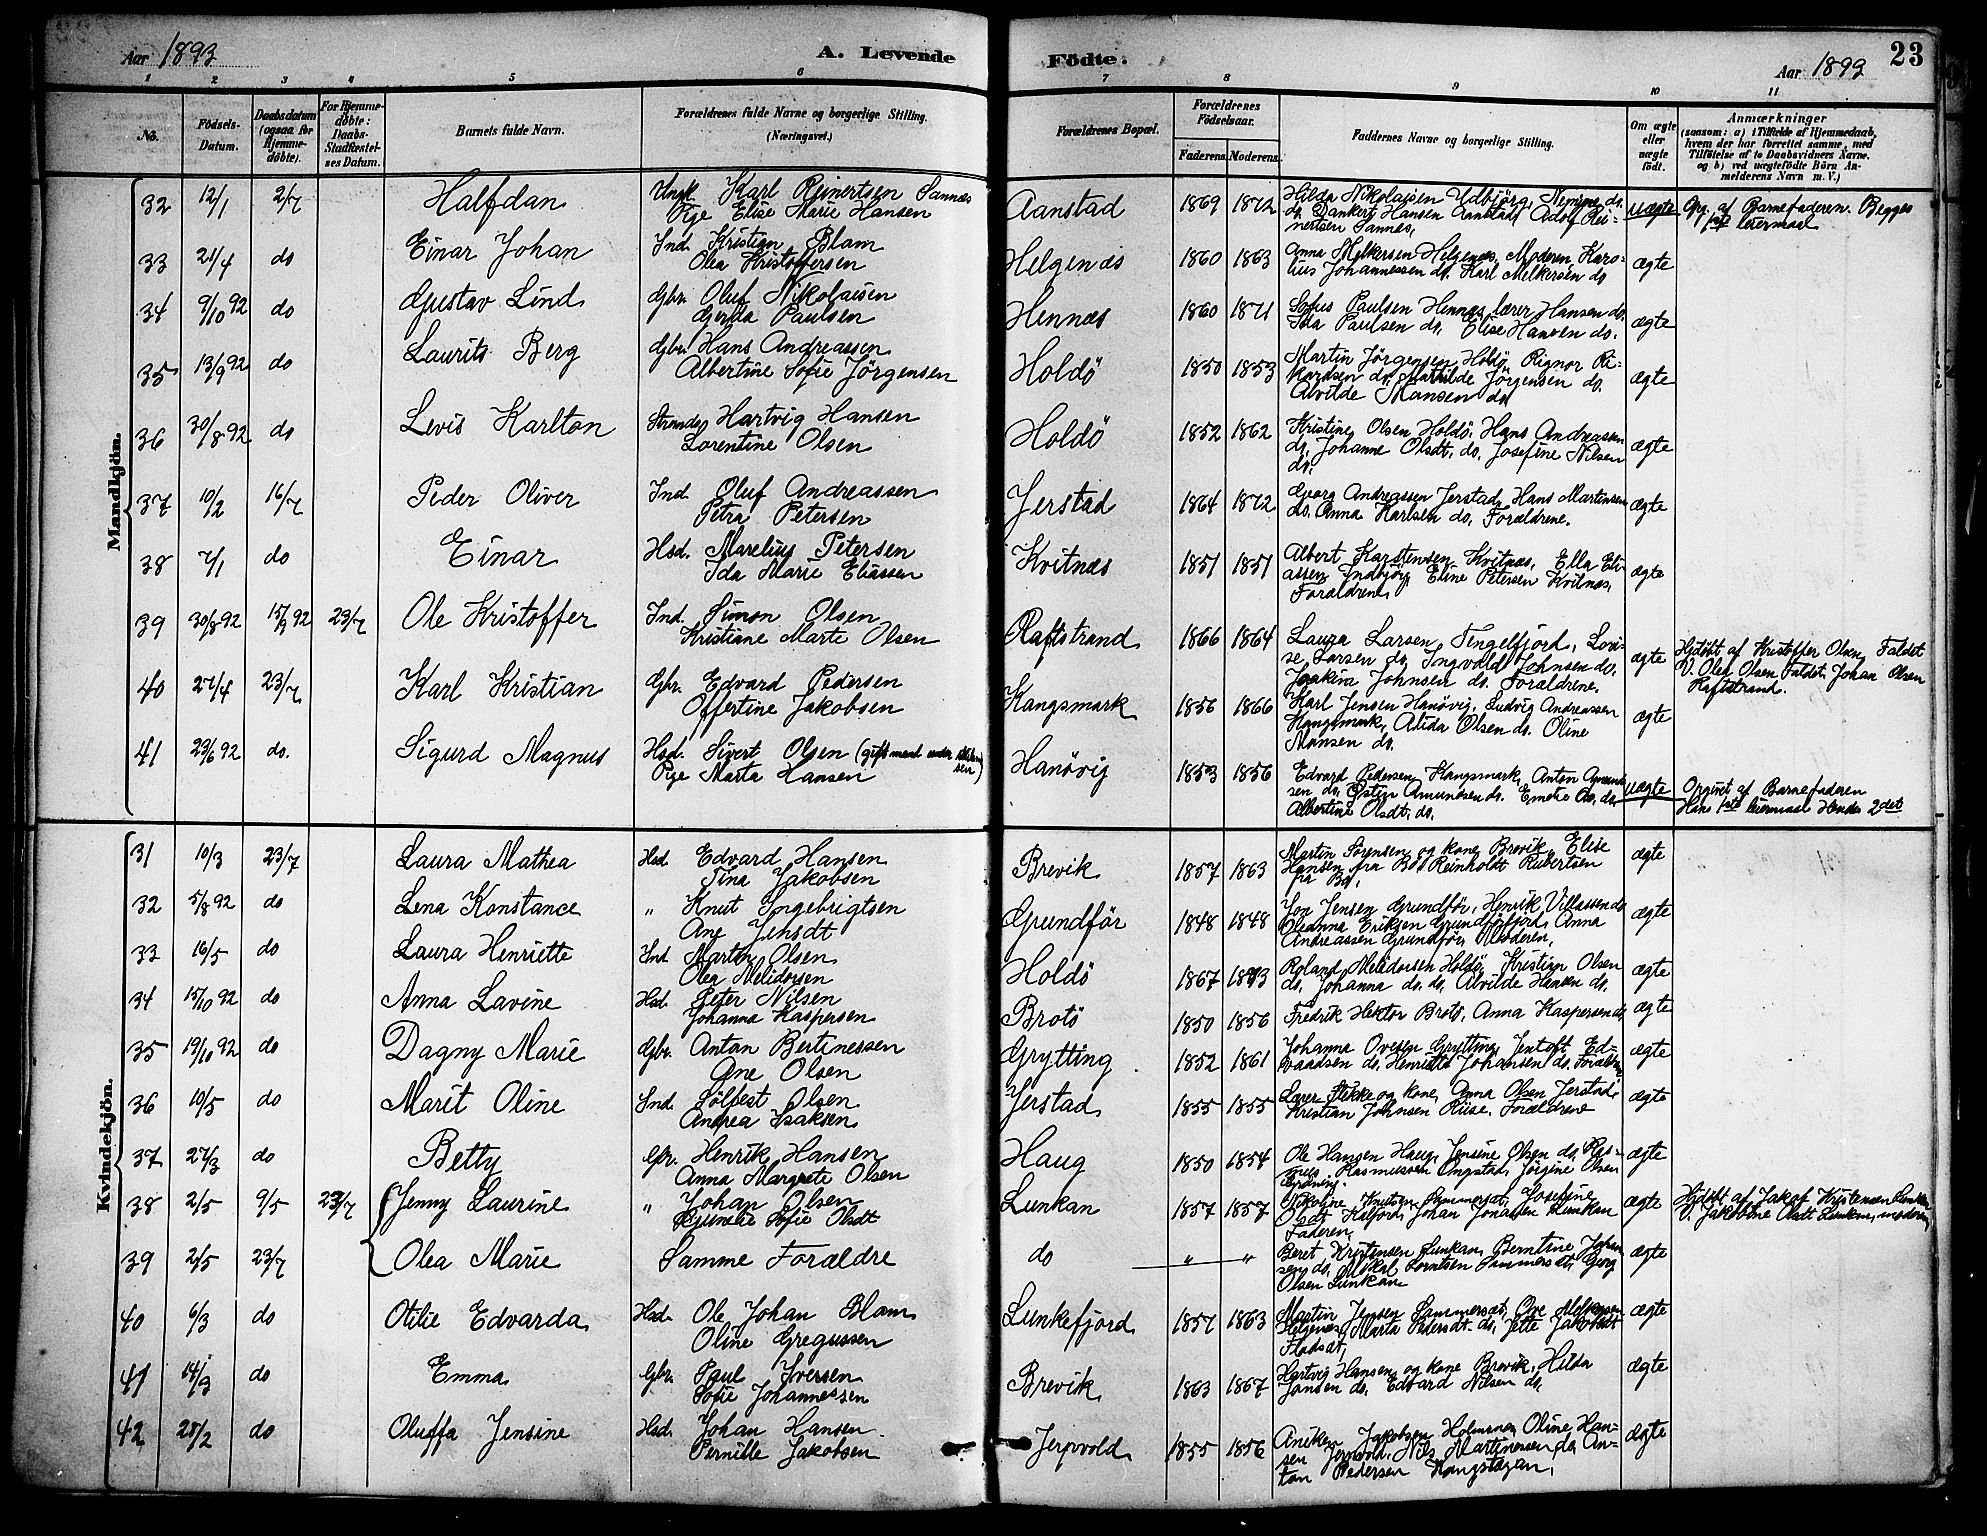 Aar 1893
A. Levende Födte.
Aar 1893
23
1 2 3 4 5 6 7 8 9 10 11
No.
Födsels-Datum.
Daabsdatum (ogsaa for Hjemme-döbte).
For Hjemme-döbte: Daabs-Stadfæstel-ses Datum.
Barnets fulde Navn.
Forældrenes fulde Navne og borgerlige Stilling.
(Næringsvei.)
Forældrenes Bopæl.
Forældrenes Födselsaar.
Faderens. Moderens.
Faddernes Navne og borgerlige Stilling.
Om ægte eller uægte födt.
Anmærkninger
(saasom: a) i Tilfælde af Hjemmedaab,
hvem der har forrettet samme, med
Tilföielse af to Daabsvidners Navne.
og b) ved uægtefödte Börn An-
melderens Navn m. V.)
Mandkjön.
32 12/1 2/7 Halfdan Ungk. Karl Reinertsen Sannæs
Pige Elise Marie Hansen
Aanstad 1869 1872 Hilda Nikolaisen
do. Dankert Hansen Aanstad, Adolf Rei-
nertsen Sannæs,
uægte Opg. af Barnefaderen. Begges
1ste leiermaal
33 21/4 do Einar Johan Ind. Kristian Blam
Olea Kristoffersen
Helgenæs 1860 1863 Anna Melkersen Helgenæs, Moderen, Karo-
lius Johannessen do. Karl Melkersen do
ægte
34 9/10 92 do Gustav Lind Gbr. Oluf Nikolaisen
Gerda Paulsen
Hennæs 1860 1871 Sofus Paulsen Hennæs, lærer Hansen do.
Ida Paulsen do, Elise Hansen do.
ægte
35 13/9 92 do Laurits Berg Gbr. Hans Andreassen
Albertine Sofie Jörgensen
Holdö 1850 1853 Martin Jörgensen Holdö, Rignor Ri-
kardsen do. Mathilde Jörgensen do.
Alvilde Hansen do
ægte
36 30/8 92 do Levis Karlton Hartvig Hansen
Lorentine Olsen
Holdö 1852 1862 Kristine Olsen Holdö, Hans Andreassen
do, Johanne Olsdt. do, Josefine Nilsen
do.
ægte
37 10/2 16/7 Peder Oliver Ind. Oluf Andreassen
Petra Petersen
Jerstad 1864 1872 Georg Andreassen Jerstad, Hans Martinsen
do. Anna Karlsen do, Forældrene.
ægte
38 7/1 do Einar Hsd. Marelius Petersen
Ida Marie Eliassen
Kvitnæs 1851 1851 Albert Karstensen Kvitnæs, Ella Eli-
assen Indbjörg, Eline Petersen Kvitnæs,
Forældrene
ægte
39 30/8 92 15/9 92 23/7 Ole Kristoffer Ind. Simon Olsen
Kristiane Marte Olsen
Raftstrand 1866 1864 Laura Larsen Tengelfjord, Lovi-
se Larsen do, Ingvald Johnsen do,
Joakim Johnsen do. Forældrene.
ægte Hjdöbt af Kristoffer Olsen Faldet
V. Olea Olsen Faldet, Johan Olsen
Raftstrand.
40 27/4 23/7 Karl Kristian Gbr. Edvard Pedersen
Offertine Jakobsen
Kangsmark 1856 1866 Karl Jensen Hanövig, Ludvig Andreassen
Kangsmark, Alida Olsen do. Oline
Hansen do.
ægte
41 23/6 92 do. Sigurd Magnus Hsd. Sivert Olsen (gift mand
Pige Marta Hansen
Hanövig 1853 1856 Edvard Pedersen Kangsmark, Anton Amund-
sen do, Amundsen do. do
Albertine Olsdt. do.
uægte Opgivet af Barnefaderen
Hans 1ste leiermaal Hendes 2det
Kvindekjön.
31 10/3 23/7 Laura Mathea Hsd Edvard Hansen
Tina Jakobsen
Brevik 1857 1863 Martin Sörensen og kone Brevik, Elise
Hansen fra Bö, Reinholdt Rubertsen
fra Bö,
ægte
32 5/8 92 do Lena Konstance " Knut Ingebrigtsen
Ane Jensdt
Grundför 1848 1848 Jon Jensen Grundför, Henrik Villassen do
Oleanna Eriksen Grundförfjord, Anna
Andreassen Grundför, Moderen,
ægte
33 16/5 do Laura Henriette Ind Martin Olsen
Olea Melidorsen
Holdö 1867 1873 Roland Melidorsen Holdö, Kristian Olsen
do, Johanna do. do, Alvilde Hansen do.
ægte
34 15/10 92 do Anna Lavine Hsd. Peter Nilsen
Johanna Kaspersen
Brotö 1850 1856 Fredrik Hektor Brotö, Anna Kaspersen do
ægte
35 19/10 92 do Dagny Marie Gbr. Anton Bertinessen
Ane Olsen
Grytting 1852 1861 Johanna Ovesen Grytting, Jentoft Ed-
vardsen do. Henriette Johansen do. Foræld
ægte
36 10/5 do Marit Oline Ind. Sölfest Olsen
Andrea Isaksen
Jerstad 1855 1855 Lærer Flikke og kone, Anna Olsen Jerstad,
Kristian Johnsen Riise. Forældrene
ægte
37 27/3 do Betty Gbr. Henrik Hansen
Anna Margrete Olsen
Haug 1850 1854 Ole Hansen Haug, Jensine Olsen do, Ras-
mus Rasmussen Ongstad, Jörgine Olsen
ægte
38 2/5 9/5 23/7 Jenny Laurine " Johan Olsen
Sofie Olsdt
Lunkan 1857 1857 Nikoline Knutsen Sommerset, Josefine
Olsdt Kalfjord, Johan Jonassen Lunkan
Faderen
ægte Hjdöbt af Jakob Kristensen Lunkan
V. Jakobine Olsdt Lunkan, moderen
39 2/5 23/7 Olea Marie Samme Forældre
do " " Beret Kristensen Lunkan, Berntine Johan
sen do, Mikal Lorntsen Sommerset, Georg
Olsen Lunkan
ægte
40 6/3 do Otilie Edvarda Hsd. Ole Johan Blam
Oline Gregussen
Lunkefjord 1857 1863 Martin Jensen Sommerset, Ove Melkersen
Helgenæs, Marta Pedersdt. do, Jette Jakobsdt
Fladsæt,
ægte
41 14/3 do Emma Gbr. Paul Iversen
Sofie Johannessen
Brevik 1863 1867 Hartvig Hansen og kone Brevik, Hilda
Jansen do. Edvard Nilsen do.
ægte
42 28/2 do Oluffa Jensine Hsd. Johan Hansen
Pernille Jakobsen
Jerpvold 1855 1856 Jakobsen Holmsnæs, Oline Han-
sen Jerpvold, Nils Martinessen do, An-
ton Pedersen
ægte